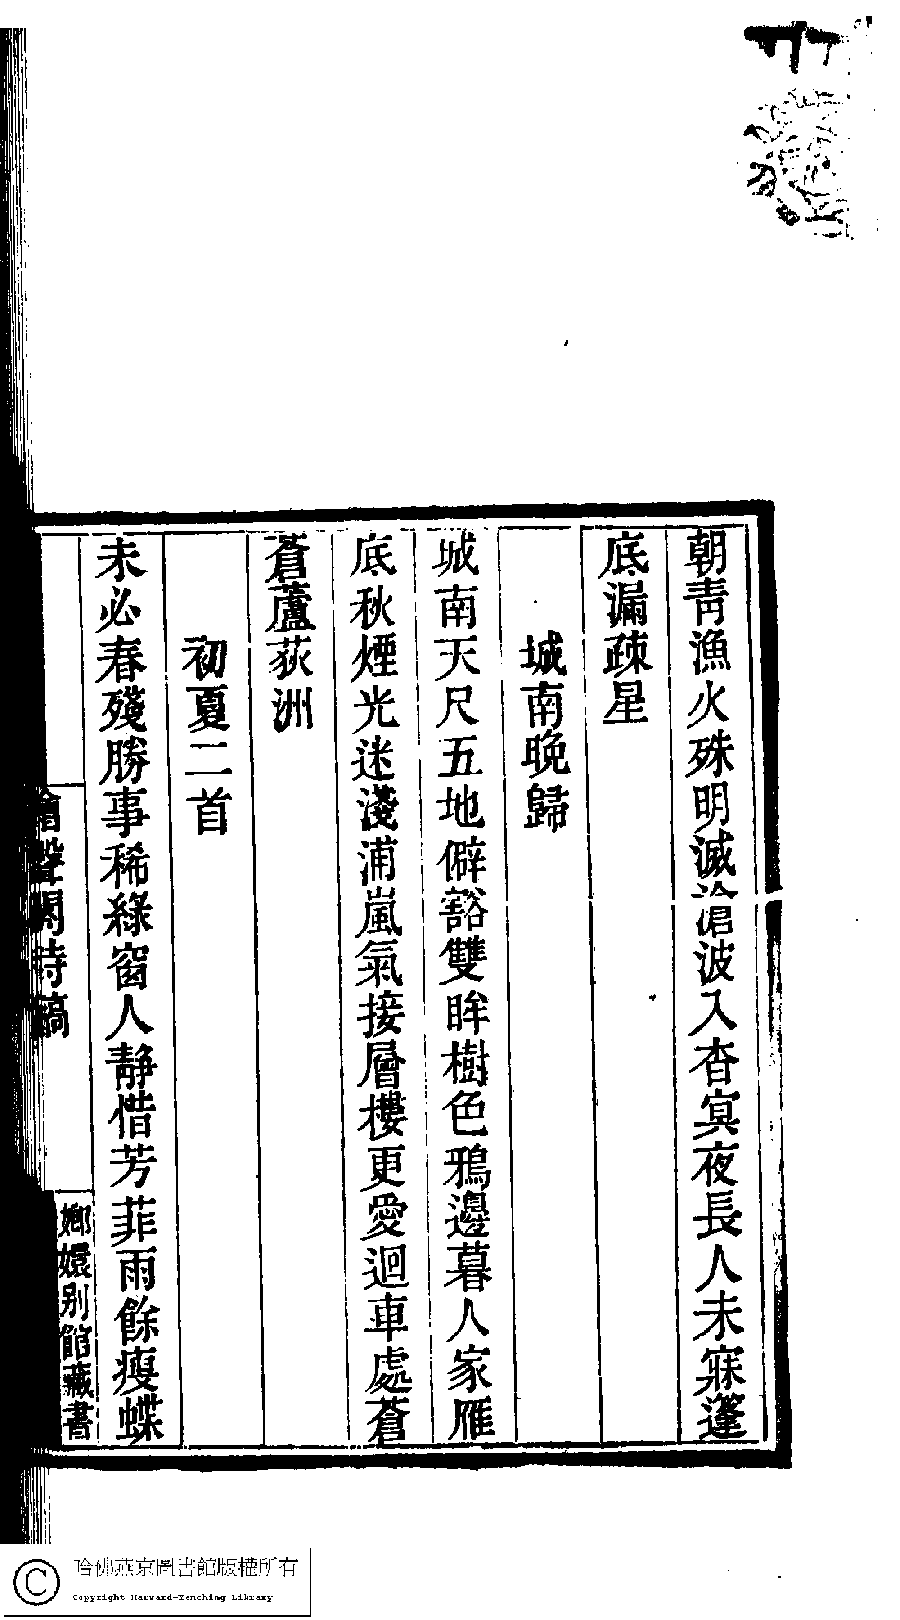 朝青漁火殊明滅滄波入杳冥夜長人未寐篷
底漏疎星
城南晚歸
城南天尺五地僻豁雙眸樹色鴉邊暮人家雁
底秋煙光迷淺浦嵐氣接層樓更愛迴車處蒼
蒼蘆荻洲
初夏二首
未必春殘勝事稀綠窗人靜惜芳菲雨餘瘦蝶
繪聲閣詩稿
嫏嬛別館藏書
哈佛燕京圖書館版權所有
Copyright Harvard-Yenching Library